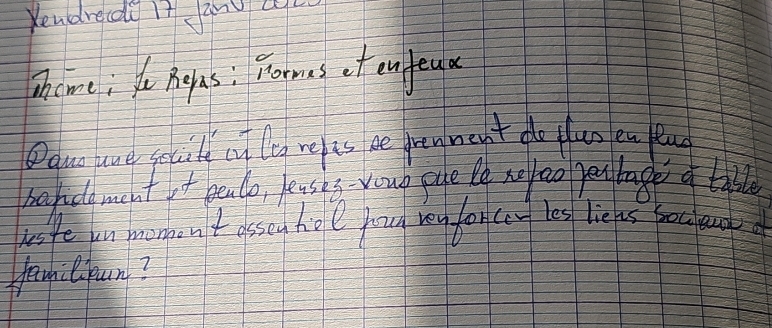 Vendredi 17 Janv
Thème : Le Repas : Formes et enjeux
Dans une société où les repas se prennent de plus en plus
rapidement et seuls, pensez-vous que le repas partagé à table,
reste un moment essentiel pour renforcer les liens sociaux et
familiaux ?